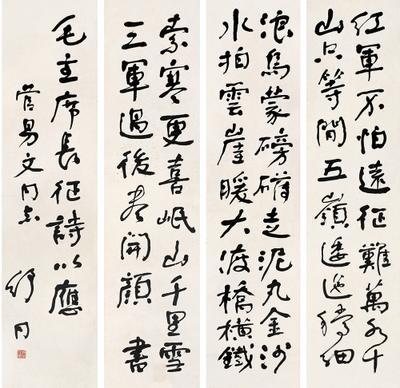 紅軍不怕遠征難萬水千
山只等閒五嶺逶迤騰细
浪烏蒙磅礴走泥丸金沙
水拍雲崖暖大渡橋橫鐵
索寒更喜岷山千里雪
三軍過後尽開顏 書
毛主席長征詩以應
管易文同志
舒同